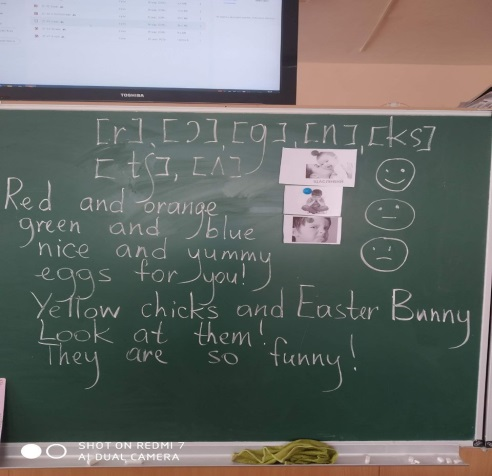 TOSHIBA
[r], [ɔ], [g], [n], [ks]
[tʃ], [ʌ]
Red and orange
green and blue
nice and yummy
eggs for you!
Yellow chicks and Easter Bunny
Look at them!
They are so funny!
SHOT ON REDMI 7
AI DUAL CAMERA